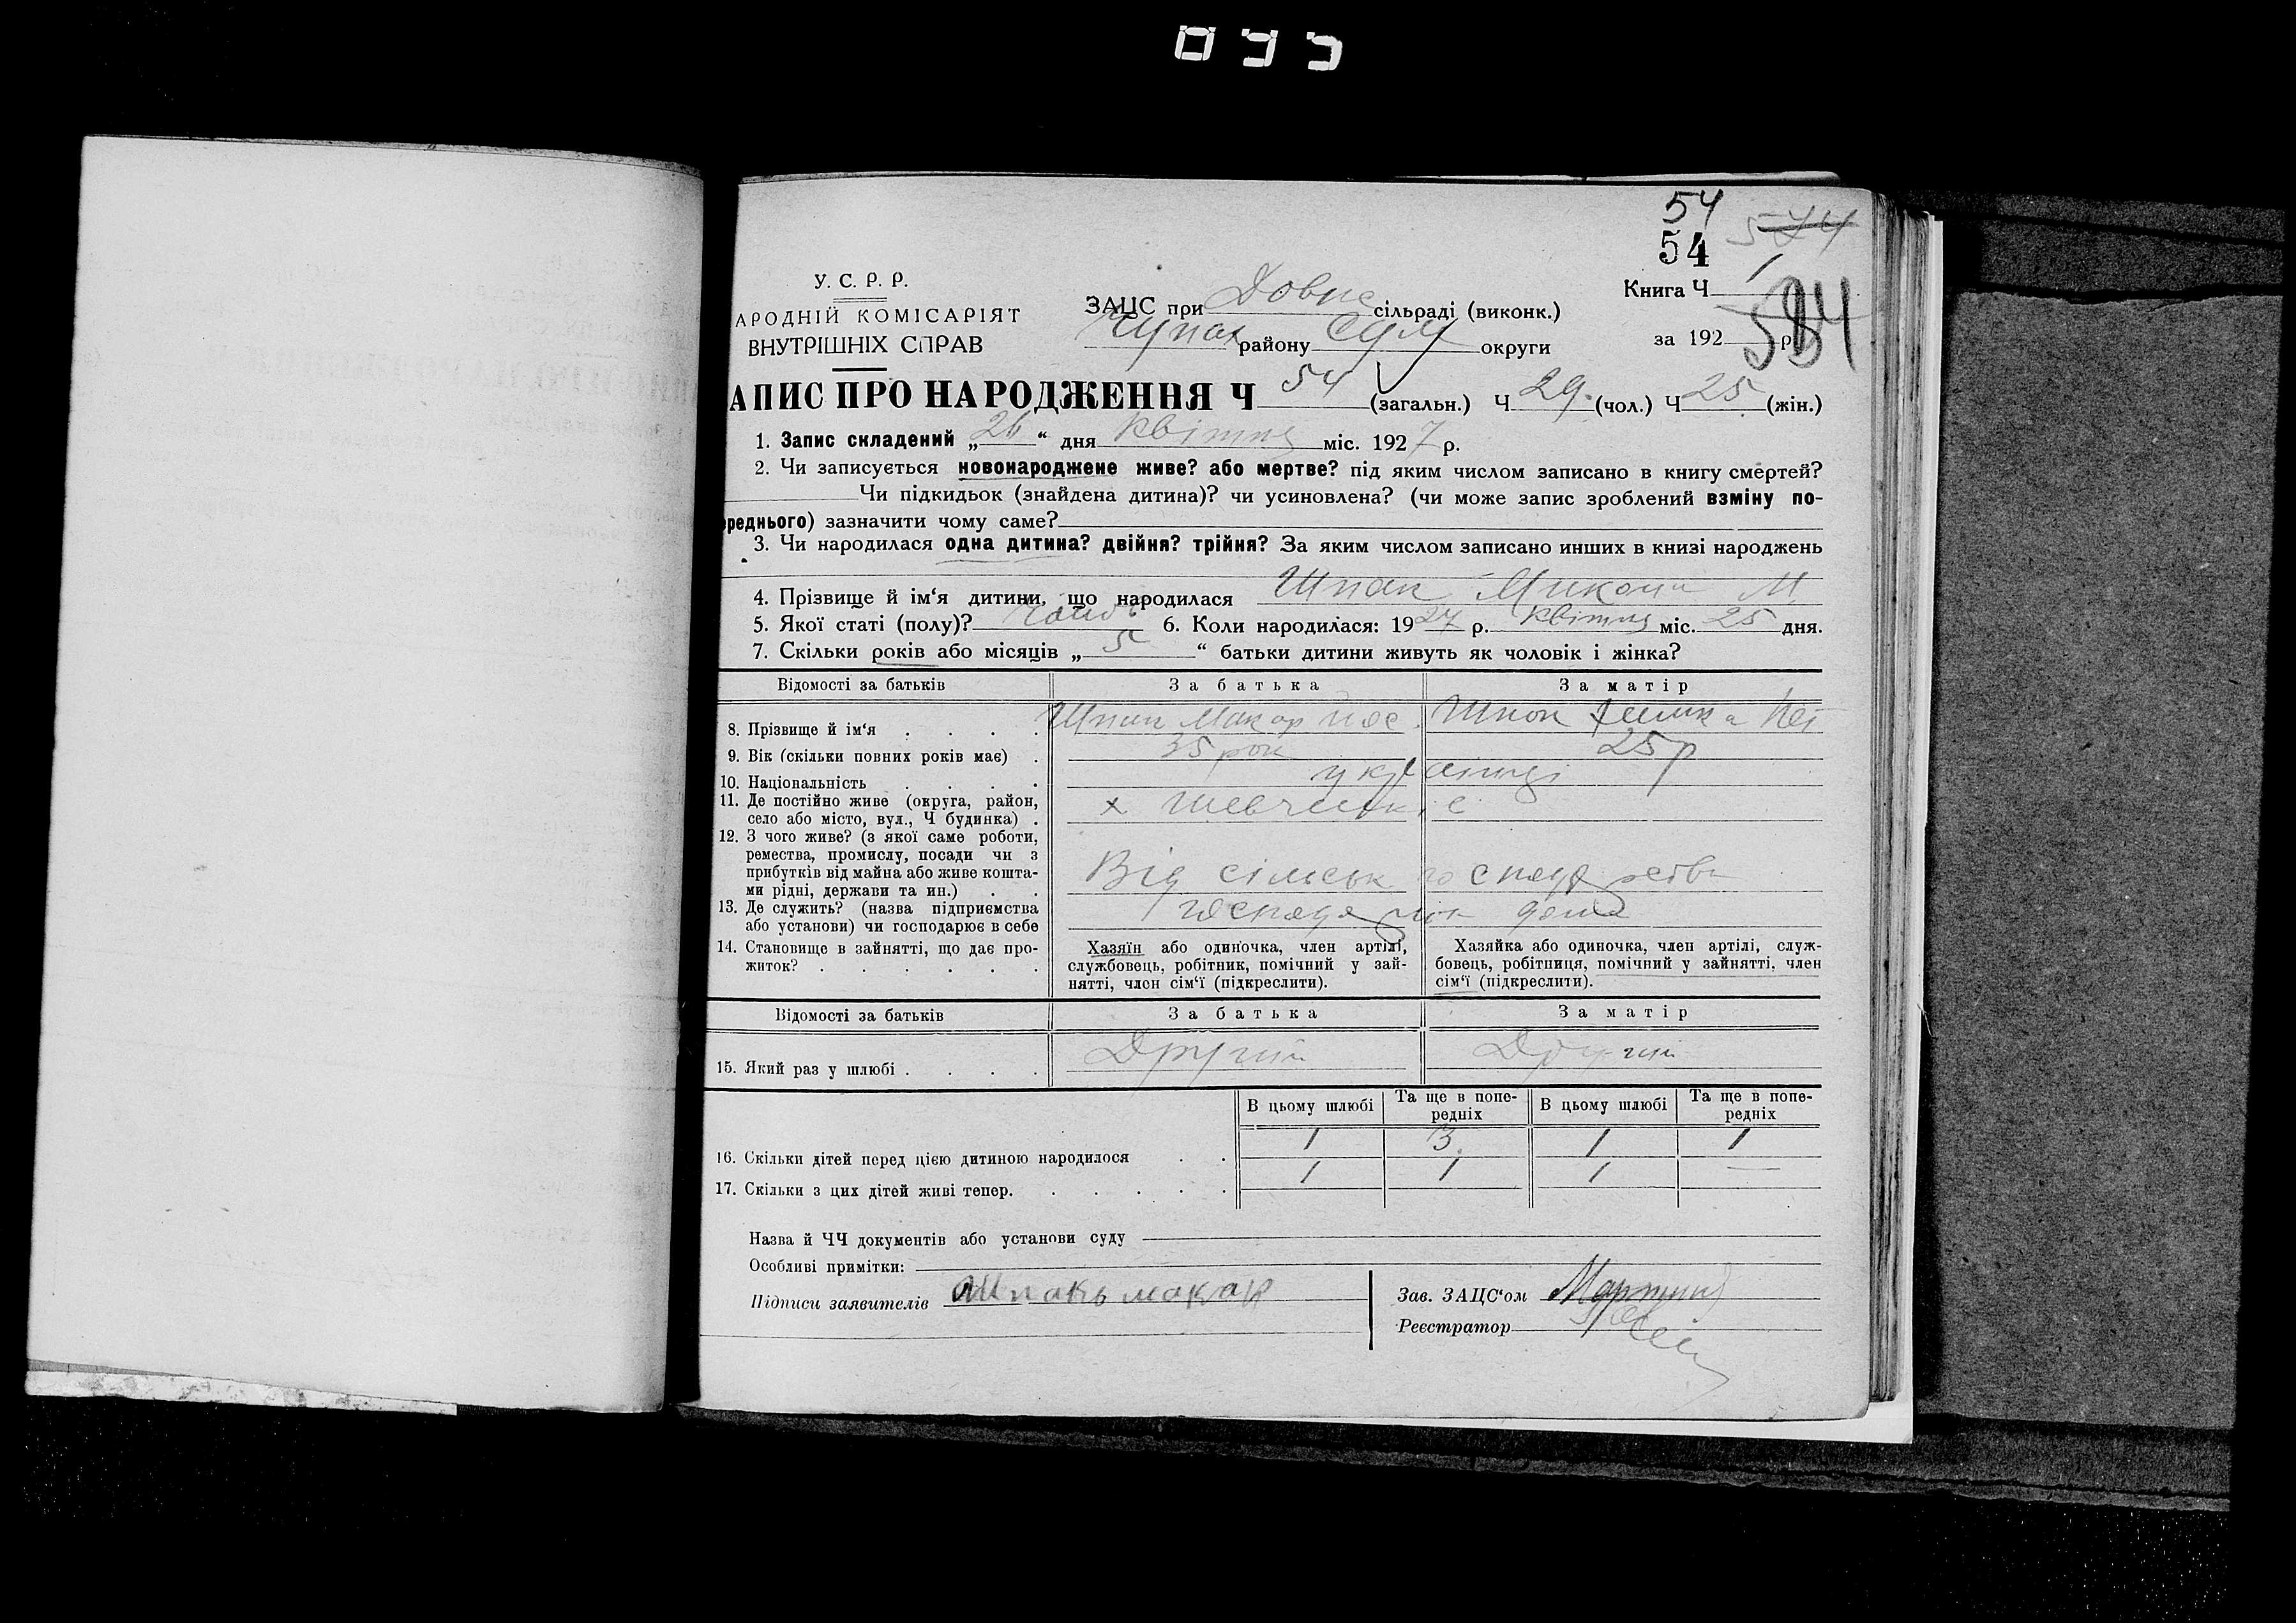 54
54
У. С. Р. Р.
Книга Ч 1
584
АРОДНІЙ КОМІСАРІЯТ
ЗАЦС при сільраді (виконк.)
ВНУТРІШНІХ СПРАВ
району Сум округи
за 192 р
АПИС ПРО НАРОДЖЕННЯ Ч 54 (загальн.) Ч 29. (чол.) Ч 25 (жін.)
1. Запис складений „26“ дня квітня міс. 1927 р.
2. Чи записується новонароджене живе? або мертве? під яким числом записано в книгу смертей?
Чи підкидьок (знайдена дитина)? чи усиновлена? (чи може запис зроблений взміну по-
ереднього) зазначити чому саме?
3. Чи народилася одна дитина? двійня? трійня? За яким числом записано инших в книзі народжень
4. Прізвище й ім‘я дитини, що народилася Шпак М
5. Якої статі (полу)? 6. Коли народилася: 1927 р. квітня міс. 25 дня.
7. Скільки років або місяців „5“ батьки дитини живуть як чоловік і жінка?
Відомості за батьків За батька За матір
8. Прізвище й ім‘я . . . . Шпак Макар Шпак
9. Вік (скільки повних років має) . 35 рок 25 р
10. Національність . . . . українці
11. Де постійно живе (округа, район,
село або місто, вул., Ч будинка) . х
12. З чого живе? (з якої саме роботи,
ремества, промислу, посади чи з
прибутків від майна або живе кошта-
ми рідні, держави та ин.) . . Від сільськ господарства
13. Де служить? (назва підприємства
або установи) чи господарює в себе дома
14. Становище в зайнятті, що дає про-
житок? . . . . . .
Хазяїн або одиночка, член артілі,
службовець, робітник, помічний у зай-
нятті, член сім‘ї (підкреслити).
Хазяйка або одиночка, член артілі, служ-
бовець, робітниця, помічний у зайнятті, член
сім‘ї (підкреслити).
Відомості за батьків За батька За матір
15. Який раз у шлюбі . . . . Другий Другий
В цьому шлюбі Та ще в попе-редніх В цьому шлюбі Та ще в попе-редніх
16. Скільки дітей перед цією дитиною народилося . . 1 3. 1 1
17. Скільки з цих дітей живі тепер. . . . . . 1 1 1 —
Назва й ЧЧ документів або установи суду
Особливі примітки:
Підписи заявителів Шпакъ макар
Зав. ЗАЦС‘ом
Реєстратор